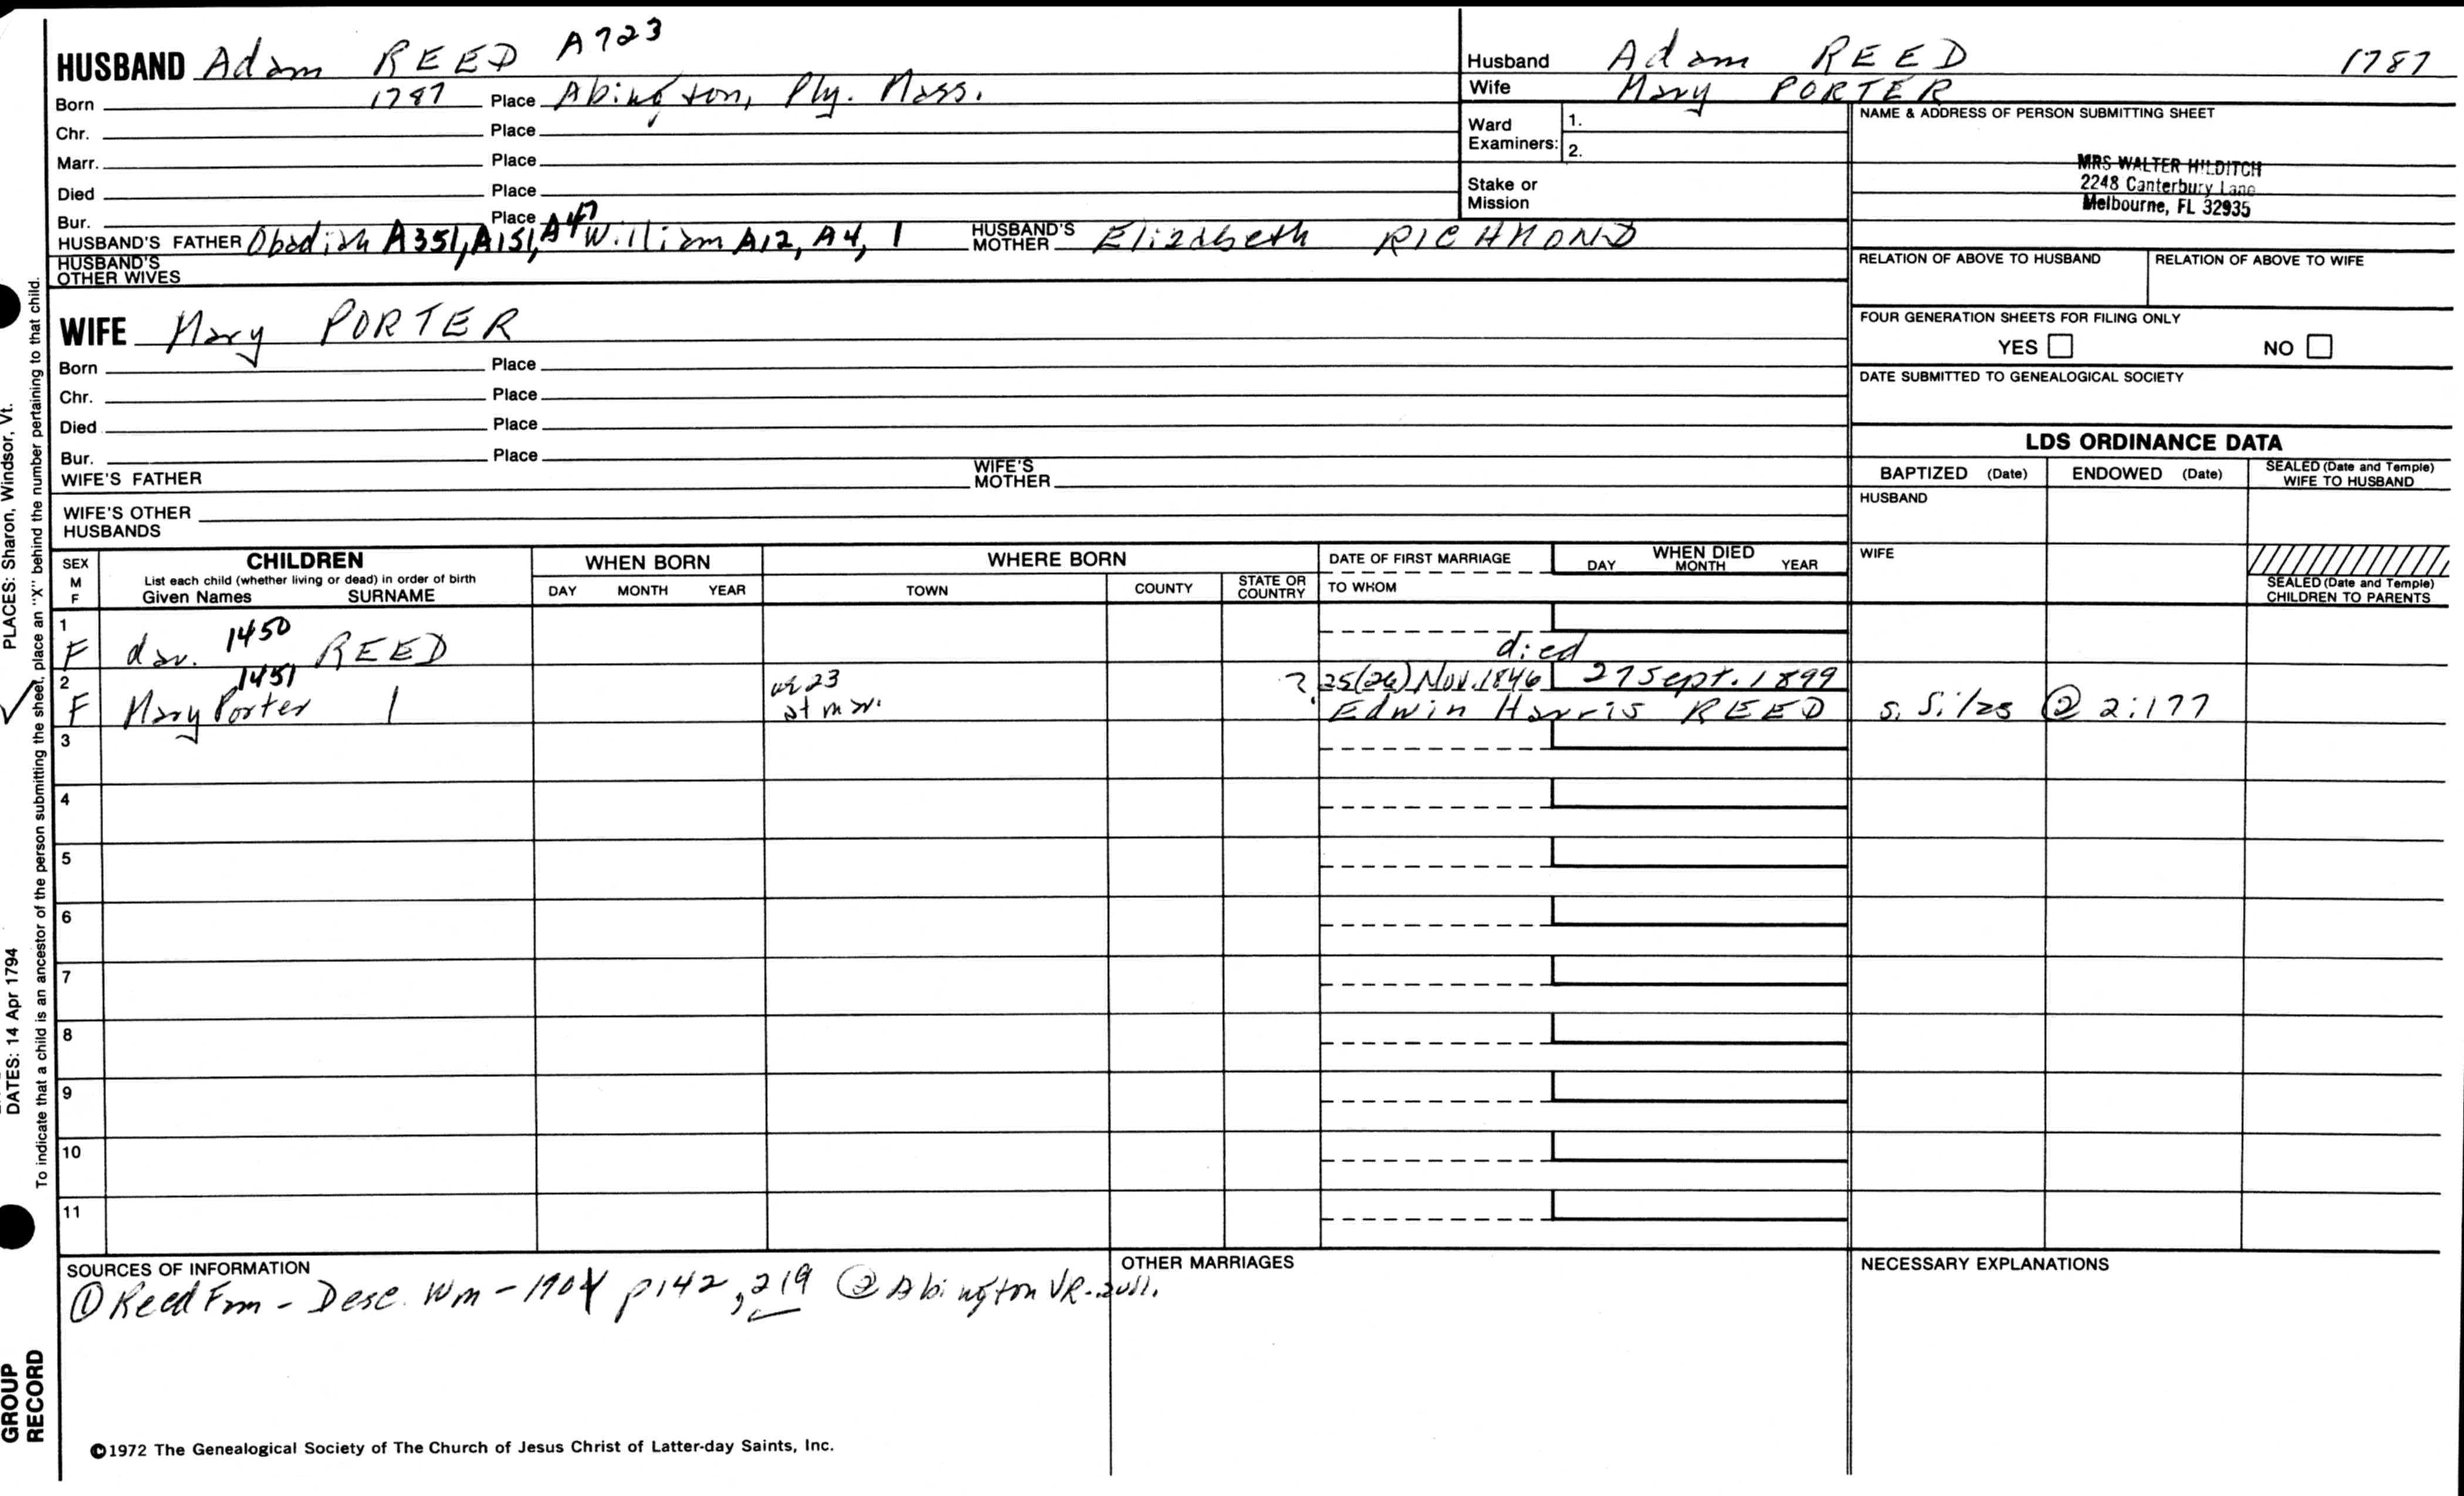 HUSBAND Adam REED A723
Born 1787 Place Abington, Ply. Mass.
Chr. Place
Marr. Place
Died Place
Bur. Place
HUSBAND'S FATHER Obadiah A351, A151, A47 William A12, A4, 1 HUSBAND'S MOTHER Elizabeth RICHMOND
HUSBAND'S OTHER WIVES
Husband Adam REED 1787
Wife Mary PORTER
Ward Examiners: 1.
2.
Stake or Mission
NAME & ADDRESS OF PERSON SUBMITTING SHEET
MRS WALTER HILDITCH
2248 Canterbury Lane
Melbourne, FL 32935
RELATION OF ABOVE TO HUSBAND RELATION OF ABOVE TO WIFE
FOUR GENERATION SHEETS FOR FILING ONLY
YES NO
DATE SUBMITTED TO GENEALOGICAL SOCIETY
WIFE Mary PORTER
Born Place
Chr. Place
Died Place
Bur. Place
WIFE'S FATHER WIFE'S MOTHER
WIFE'S OTHER HUSBANDS
LDS ORDINANCE DATA
BAPTIZED (Date) ENDOWED (Date) SEALED (Date and Temple) WIFE TO HUSBAND
HUSBAND
WIFE
SEALED (Date and Temple) CHILDREN TO PARENTS
SEX M F
CHILDREN
List each child (whether living or dead) in order of birth
Given Names SURNAME
WHEN BORN
DAY MONTH YEAR
WHERE BORN
TOWN COUNTY STATE OR COUNTRY
DATE OF FIRST MARRIAGE
TO WHOM
WHEN DIED
DAY MONTH YEAR
1 F dau. 1450 REED died
2 F Mary Porter 1451 | 23 at mar. ? 25(26) Nov. 1846 27 Sept. 1899
Edwin Harris REED s. Silas @ 2:177
3
4
5
6
7
8
9
10
11
SOURCES OF INFORMATION
① Reed Fam - Desc. Wm - 1904 p142, 219 ② Abington VR.
OTHER MARRIAGES
NECESSARY EXPLANATIONS
©1972 The Genealogical Society of The Church of Jesus Christ of Latter-day Saints, Inc.
PLACES: Sharon, Windsor, Vt.
DATES: 14 Apr 1794
To indicate that a child is an ancestor of the person submitting the sheet, place an "X" behind the number pertaining to that child.
GROUP
RECORD